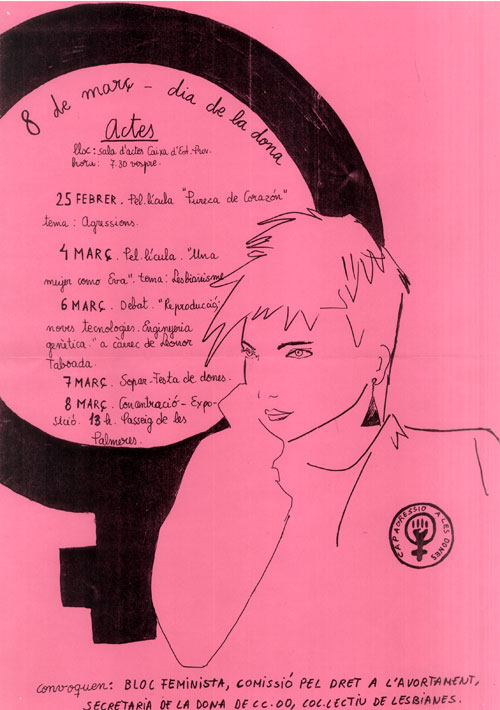 8 de març - dia de la dona
Actes
lloc: sala d'actes Caixa d'Est. Prov.
hora: 7.30 vespre.
25 FEBRER. Pel.lícula "Pureza de Corazón"
tema: Agressions.
4 MARÇ. Pel.lícula. "Una
mujer como Eva". tema: Lesbianisme
6 MARÇ. Debat. "Reproducció,
noves tecnologies. Enginyeria
genètica." a càrrec de Leonor
Taboada.
7 MARÇ. Sopar-Festa de dones.
8 MARÇ. Concentració - Expo-
sició. 13 h. Passeig de les
Palmeres.
CAP AGRESSIO A LES DONES
convoquen: BLOC FEMINISTA, COMISSIÓ PEL DRET A L'AVORTAMENT,
SECRETARIA DE LA DONA DE CC.OO, COL.LECTIU DE LESBIANES.